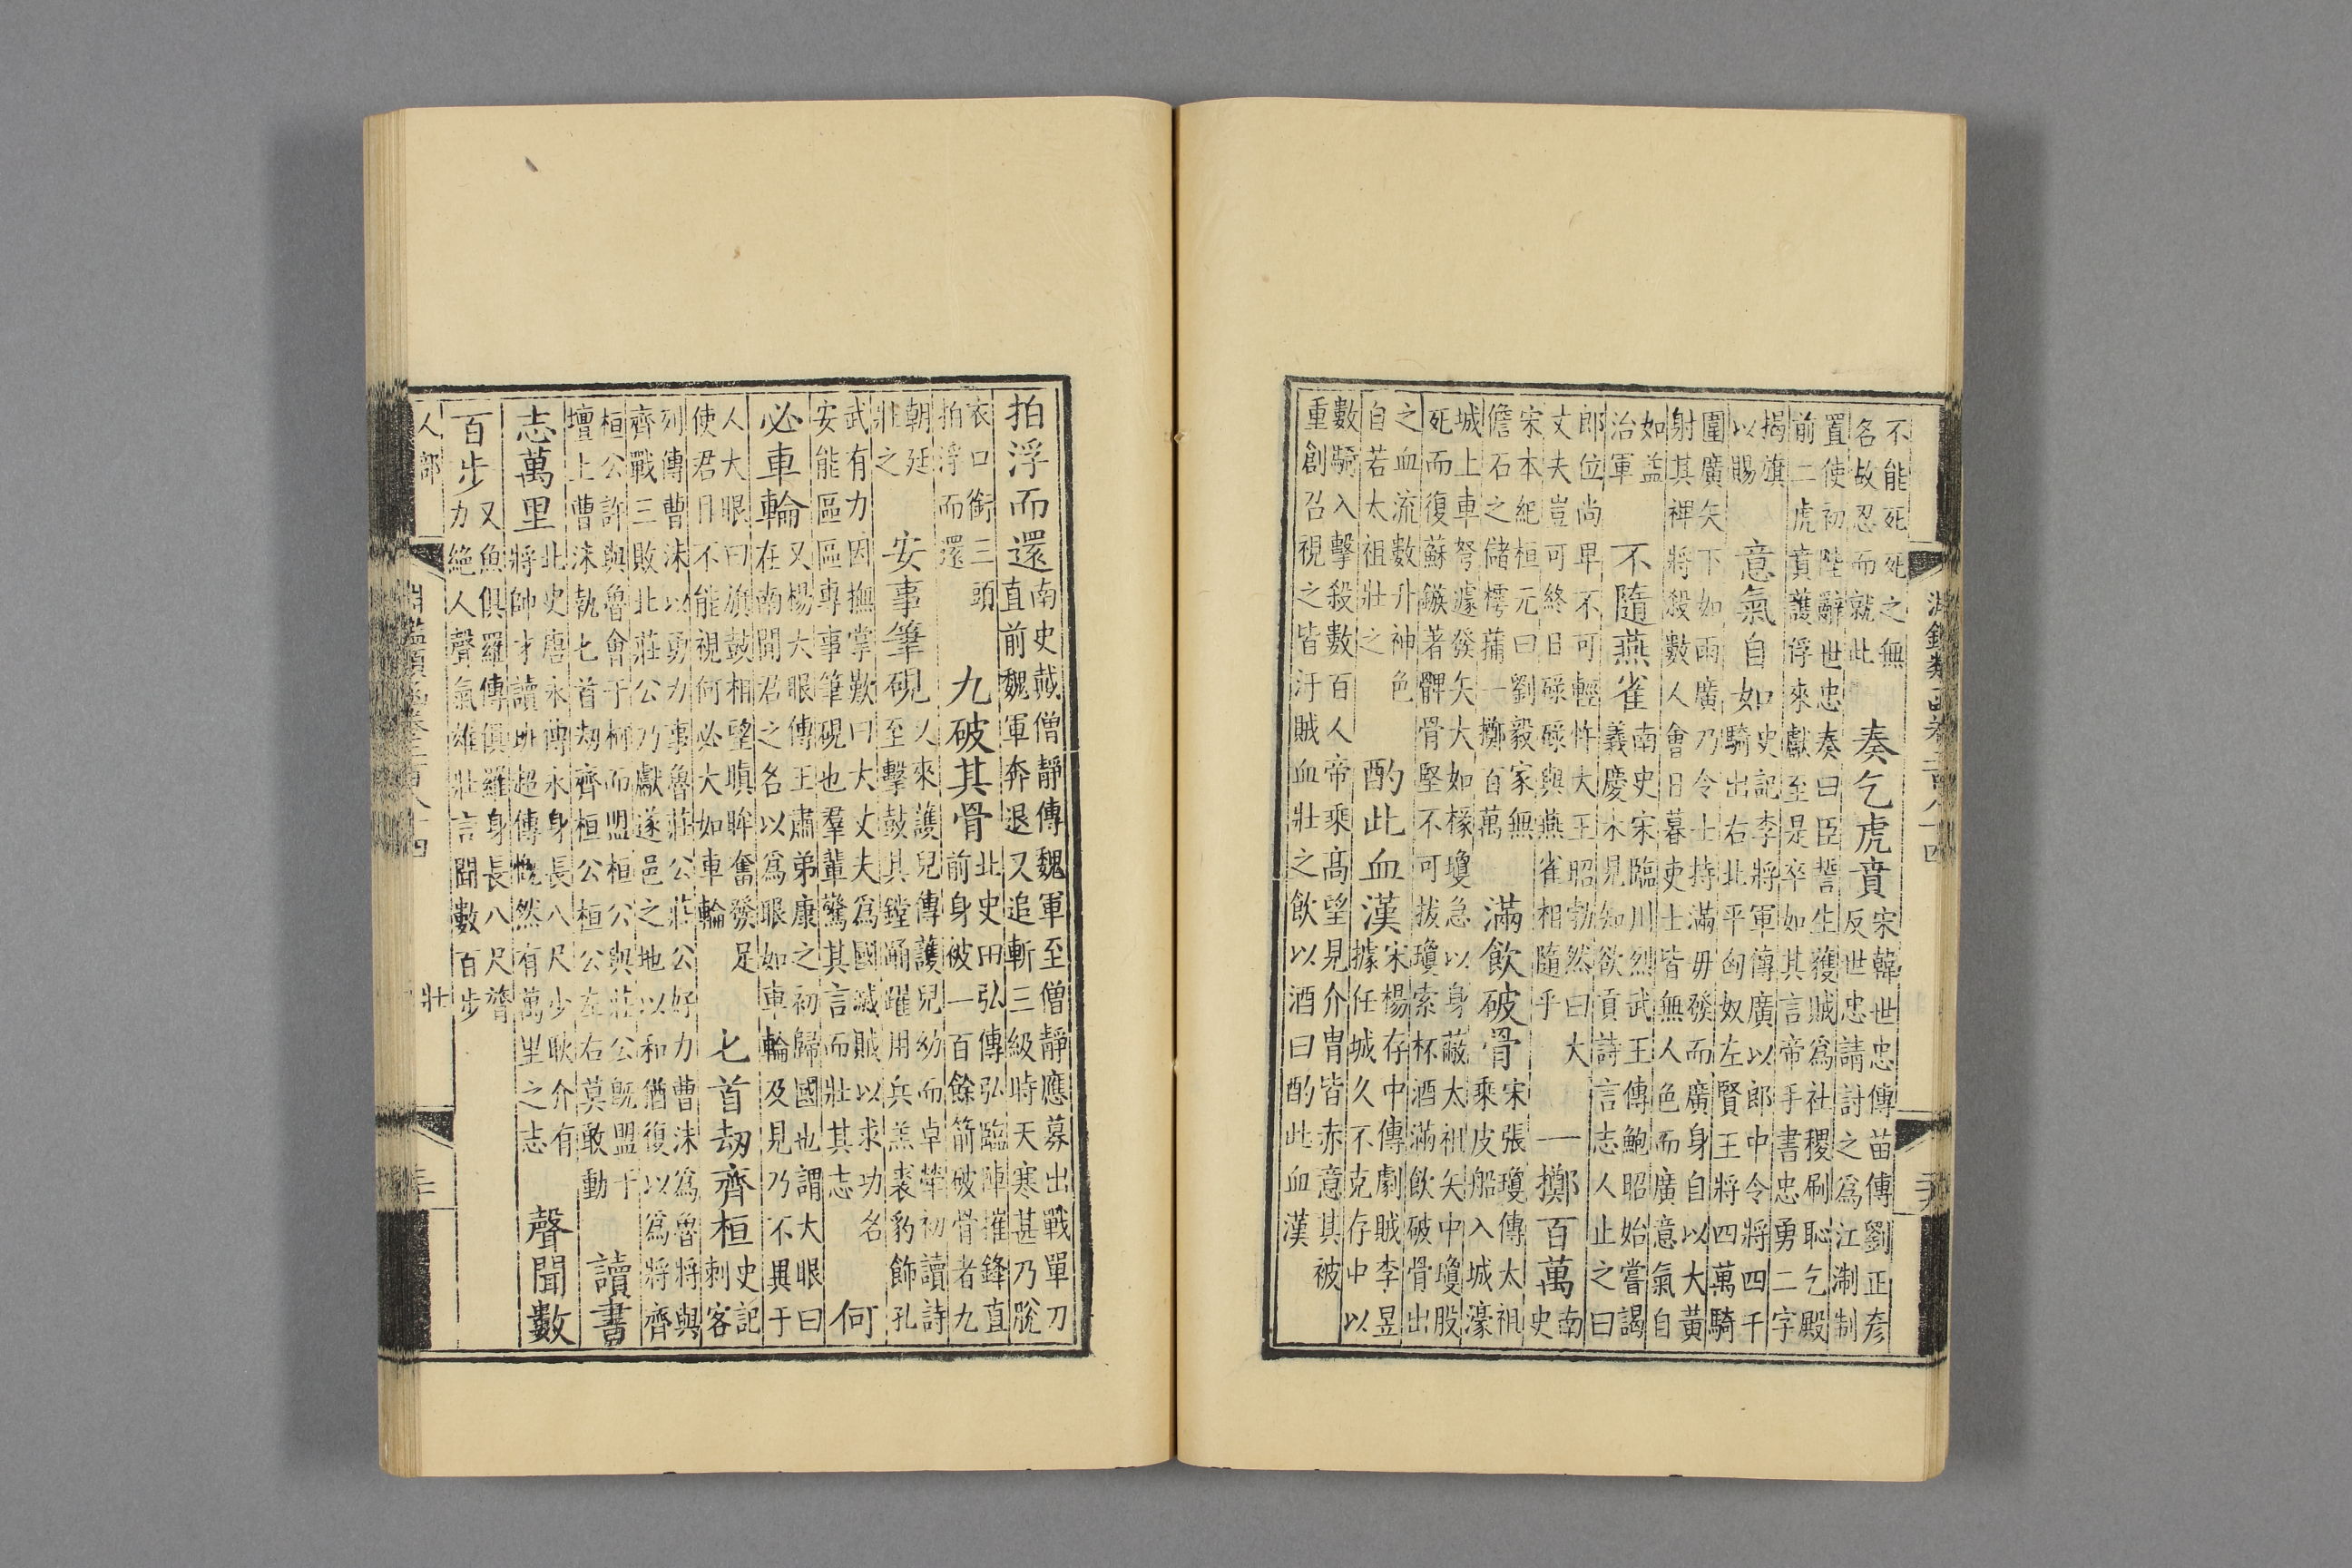 淵鑑類函卷二百八十四
不能死死之無
名故忍而就此
奏乞虎賁
宋韓世忠傳苗傅劉正彥
反世忠請討之爲江淛制
置使初陛辭世忠奏曰臣誓生獲賊爲社稷刷恥乞殿
前二虎賁護俘來獻至是卒如其言帝手書忠勇二字
揭旗
以賜
意氣自如
史記李將軍傳廣以郎中令將四千
騎出右北平匈奴左賢王將四萬騎
圍廣矢下如雨廣乃令士持滿毋發而廣身自以大黃
射其裨將殺數人會日暮吏士皆無人色而廣意氣自
如益
治軍
不隨燕雀
南史宋臨川烈武王傳鮑昭始嘗謁
義慶未見知欲貢詩言志人止之曰
郎位尚卑不可輕忤大王昭勃然曰大
丈夫豈可終日碌碌與燕雀相隨乎
一擲百萬
南
史
宋本紀桓元曰劉毅家無
儋石之儲樗蒱一擲百萬
滿飲破骨
宋張瓊傳太祖
乘皮船入城濠
城上車弩遽發矢大如椽瓊急以身蔽太祖矢中瓊股
死而復蘇鏃著髀骨堅不可拔瓊索杯酒滿飲破骨出
之血流數升神色
自若太祖壯之
酌此血漢
宋楊存中傳劇賊李昱
據任城久不克存中以
數騎入擊殺數百人帝乘高望見介冑皆赤意其被
重創召視之皆汙賊血壯之飲以酒曰酌此血漢
拍浮而還
南史戴僧靜傳魏軍至僧靜應募出戰單刀
直前魏軍奔退又追斬三級時天寒甚乃脫
衣口銜三頭
拍浮而還
九破其骨
北史田弘傳弘臨陣摧鋒直
前身被一百餘箭破骨者九
朝廷
壯之
安事筆硯
又來護兒傳護兒幼而卓犖初讀詩
至擊鼓其鏜踊躍用兵羔裘豹飾孔
武有力因撫掌歎曰大丈夫爲國滅賊以求功名
安能區區專事筆硯也羣輩驚其言而壯其志
何必車輪
又楊大眼傳王肅弟康之初歸國也謂大眼曰
在南聞君之名以爲眼如車輪及見乃不異于
人大眼曰旗鼓相望瞋眸奮發足
使君目不能視何必大如車輪
匕首刼齊桓
史記
刺客
列傳曹沬以勇力事魯莊公莊公好力曹沬爲魯將與
齊戰三敗北莊公乃獻遂邑之地以和猶復以爲將齊
桓公許與魯會于柯而盟桓公與莊公旣盟于
壇上曹沬執匕首刼齊桓公桓公左右莫敢動
讀書志萬里
北史唐永傳永身長八尺少耿介有
將帥才讀班超傳慨然有萬里之志
聲聞數百步
又魚俱羅傳俱羅身長八尺膂
力絕人聲氣雄壯言聞數百步
人部
壯